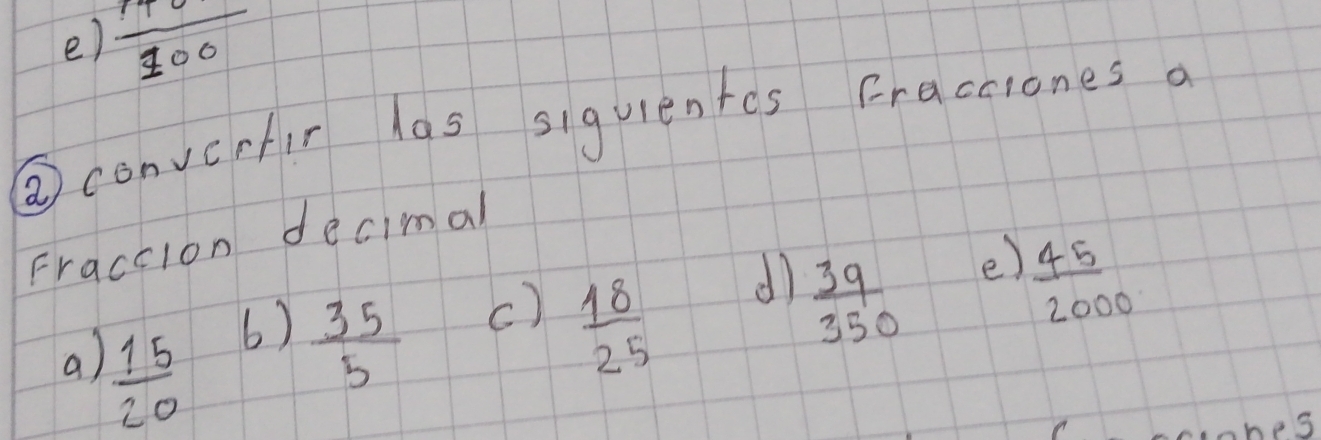 e) 100
② convertir las siguientes Fracciones a
Fraccion decimal
a) 15/20 b) 35/5 c) 18/25 d) 39/350 e) 45/2000